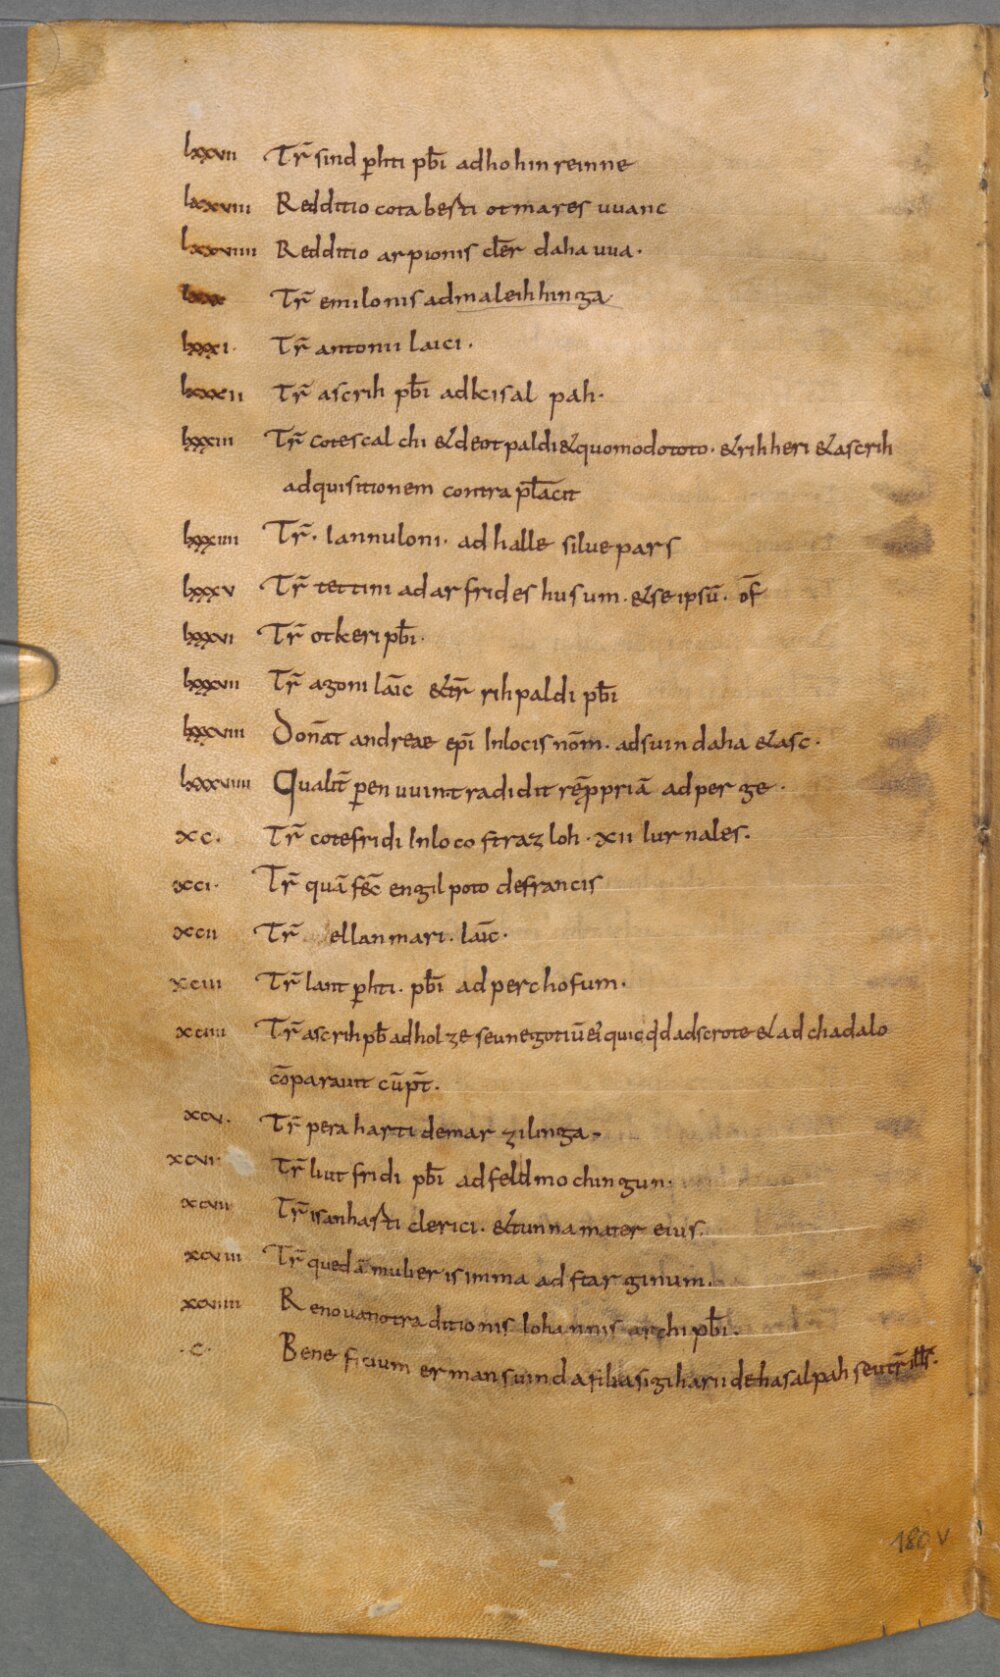 lxxvii Tr̄ sind ꝑhti pb̄i adhohinreinne
lxxviii Redditio cotabesti otmares uuanc
lxxviiii Redditio arpionis cl̄er dahauua.
lxxx Tr̄ emilonis admaleihhinga
lxxxi. Tr̄ antonii laici.
lxxxii Tr̄ ascrih pb̄i adkisal pah.
lxxxiii Tr̄ cotescalchi &deotpaldi&quomodototo. &rihheri &ascrih
adquisitionem contra pl̄acit
lxxxiiii Tr̄. Iannuloni. adhalle silue pars
lxxxv Tr̄ tettini adarfrides husum. &seipsū. of̄
lxxxvi Tr̄ otkeri pb̄i.
lxxxvii Tr̄ agoni laīc &tr̄ rihpaldi pb̄i
lxxxviii Don̄at andreae ep̄i Inlocis nōm. adsuindaha &asc.
lxxxviiii Qualit̄ ꝑenuuint radidit rēp̄priā adperge.
xc. Tr̄ cotefridi Inloco strazloh. xii Iurnales.
xci. Tr̄ quā fec̄ engilpoto defrancis
xcii Tr̄ ellanmari. laīc.
xciii Tr̄ lant ꝑhti. pb̄i adperchofum.
xciiii Tr̄ ascrih pb̄ adholze seunegotiū ei' quicq̄d adscrote &ad chadalo
cōparauit cūp̄t.
xcv. Tr̄ peraharti demarzilinga.
xcvi. Tr̄ liutfridi pb̄i adfeldmochingun.
xcvii Tr̄ isanhasti clerici. &tunna mater eius.
xcviii Tr̄ quedā mulier isimma adstarginum.
xcviiii Renouanotraditionis Iohannis archipb̄i.
.c. Beneficium ermansuinda filia sigiharii dehasalpah seutr̄ ill̄s.
180 v